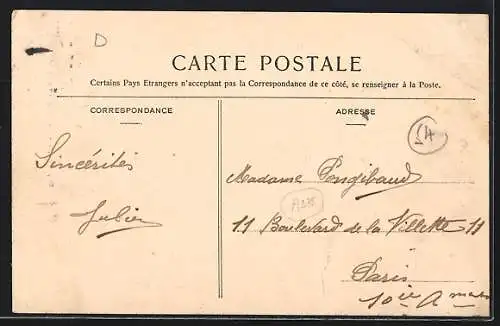 D
CARTE POSTALE
Certains Pays Etrangers n'acceptant pas la Correspondance de ce côté, se renseigner à la Poste.
CORRESPONDANCE
ADRESSE
54
Sincérités
Julien
Madame Pongibaud
11 Boulevard de la Villette 11
Paris
10ie A